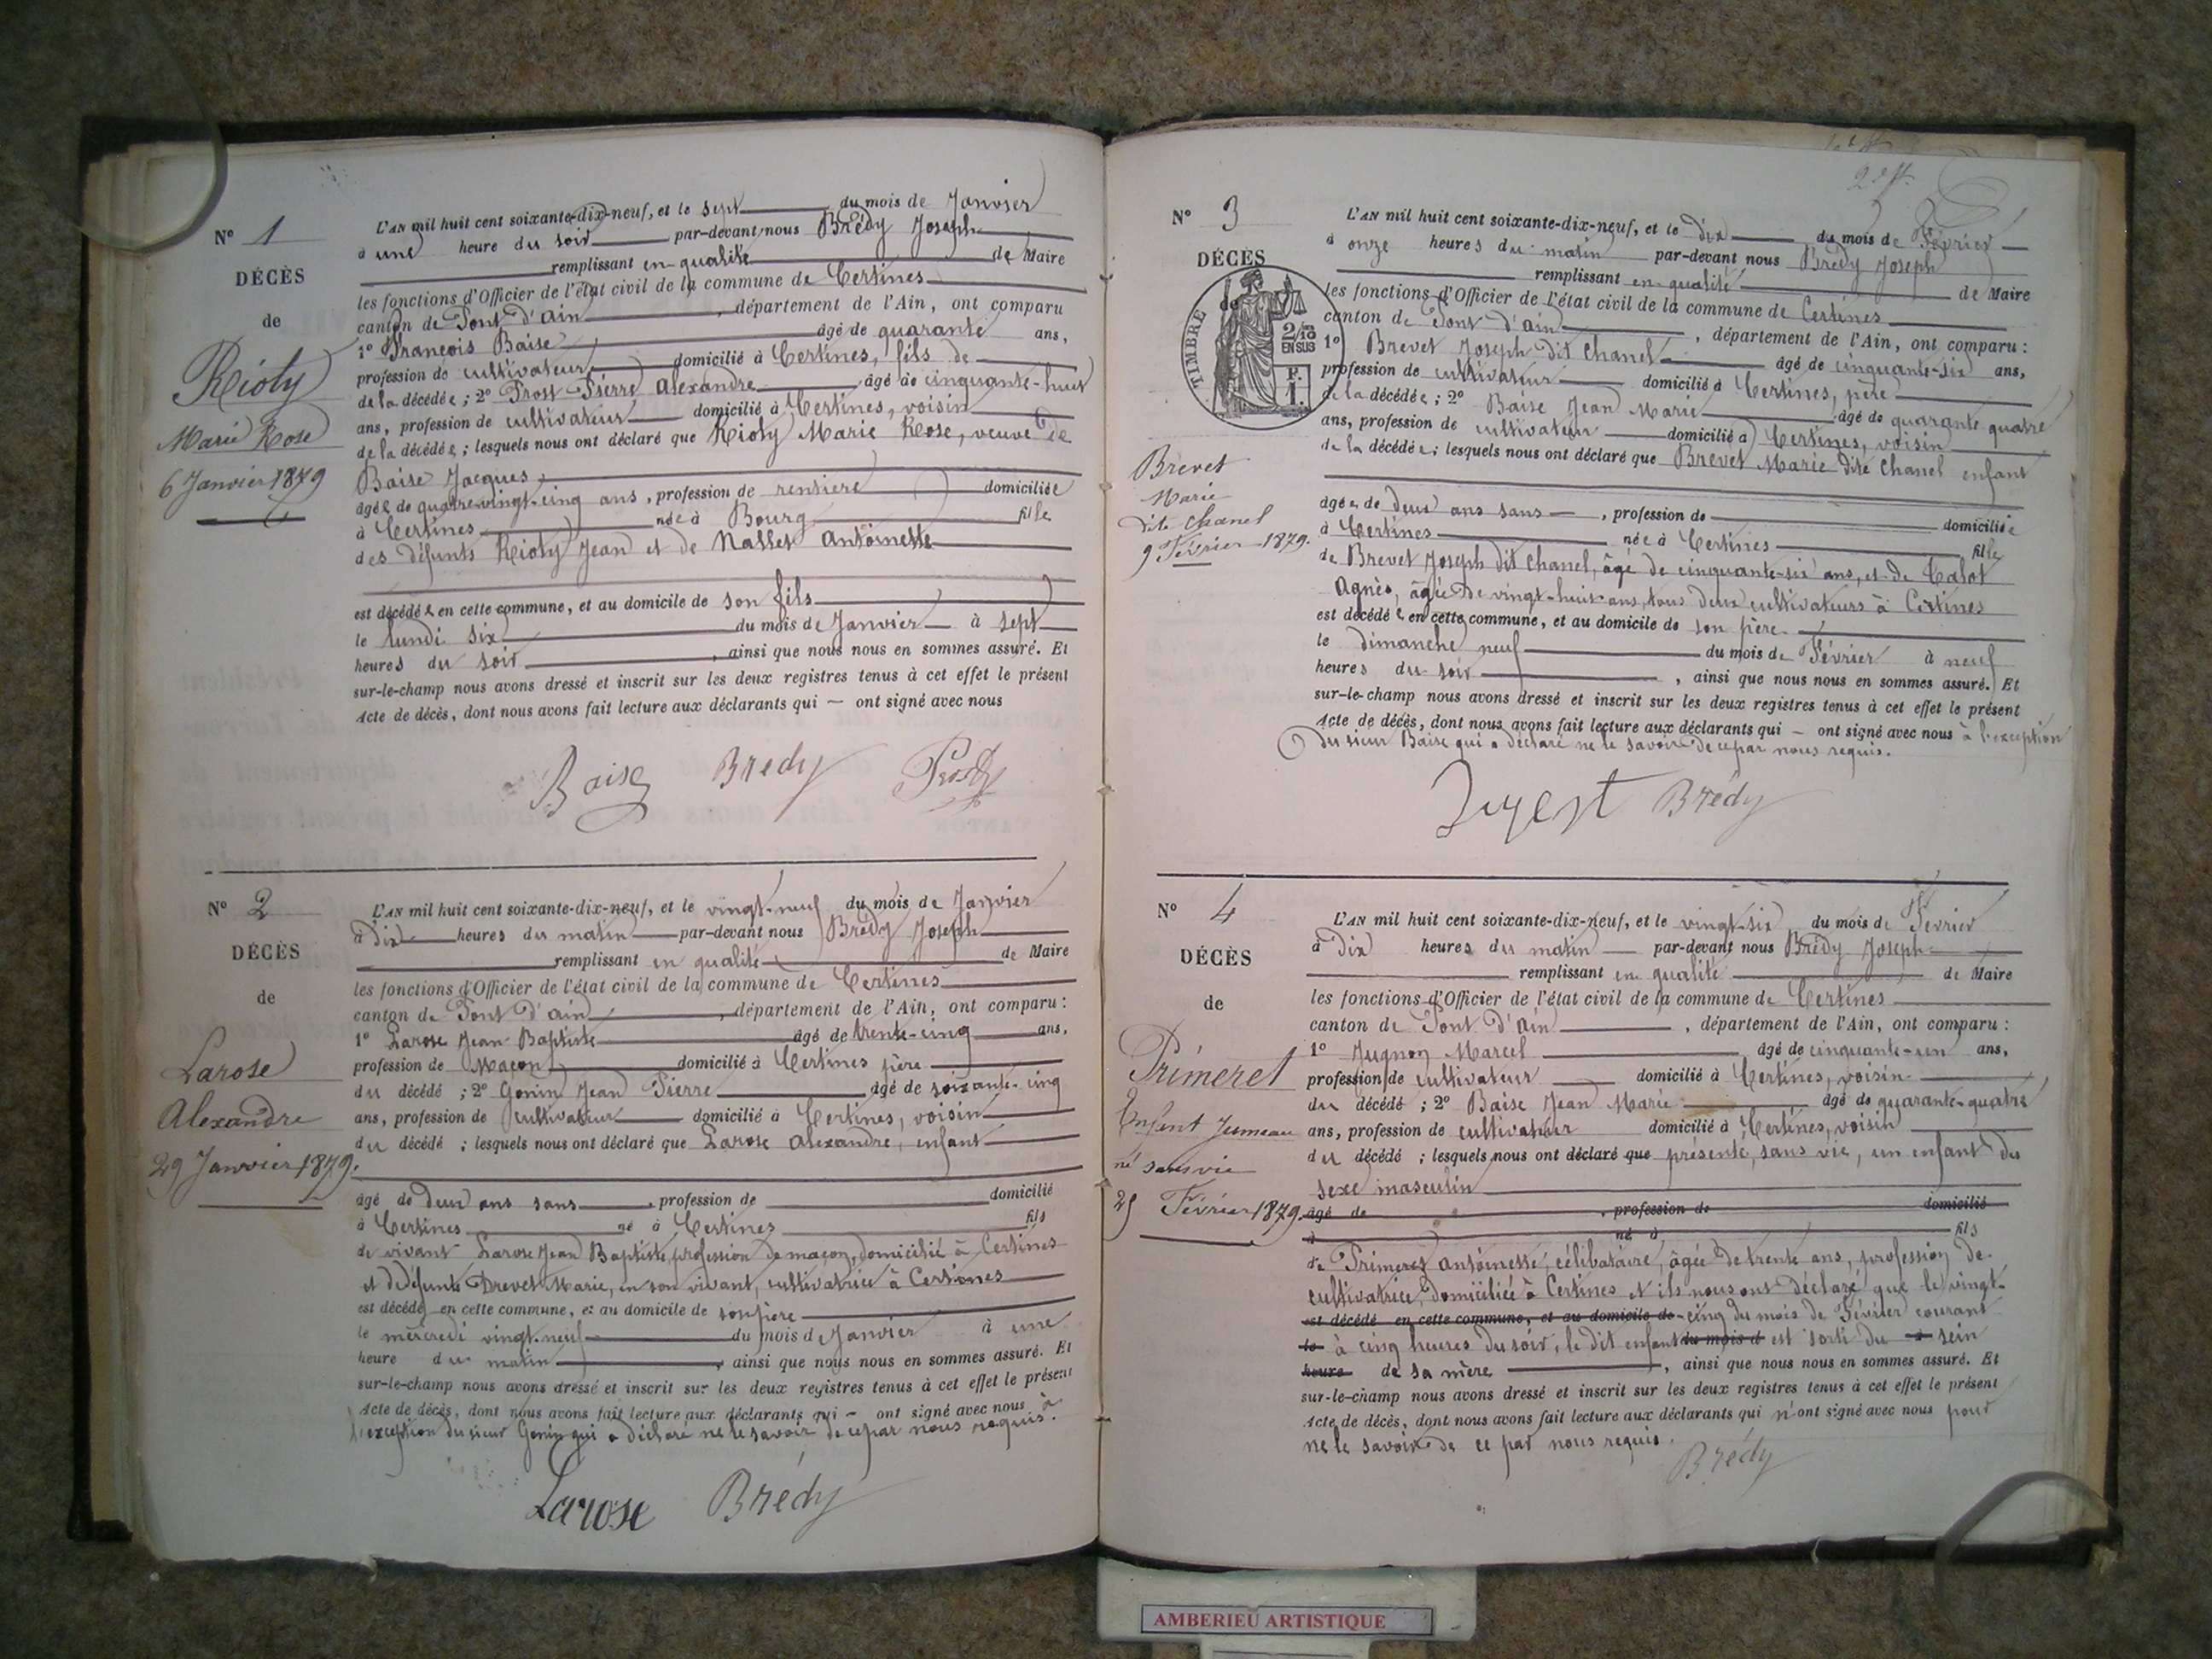 N° 1
DÉCÈS
de
Rioty
Marie Rose
6 Janvier 1879
L'AN mil huit cent soixante-dix-neuf, et le sept du mois de Janvier
à une heure du soir par-devant nous Brédy Joseph
remplissant en qualité de Maire
les fonctions d'Officier de l'état civil de la commune de Certines
canton de Pont d'ain, département de l'Ain, ont comparu
1° François Baise âgé de quarante ans,
profession de cultivateur domicilié à Certines, fils de
de la décédée ; 2° Prost Pierre Alexandre âgé de cinquante-huit
ans, profession de cultivateur domicilié à Certines, voisin
de la décédée ; lesquels nous ont déclaré que Rioty Marie Rose, veuve de
Baise Jacques
âgée de quatre-vingt-cinq ans, profession de rentière domiciliée
à Certines née à Bourg fille
des défunts Rioty Jean et de Nallet Antoinette
est décédée en cette commune, et au domicile de son fils
le lundi six du mois de Janvier à sept
heures du soir, ainsi que nous nous en sommes assuré. Et
sur-le-champ nous avons dressé et inscrit sur les deux registres tenus à cet effet le présent
Acte de décès, dont nous avons fait lecture aux déclarants qui — ont signé avec nous
Baise Brédy Prost
N° 2
DÉCÈS
de
Larose
Alexandre
29 Janvier 1879.
L'AN mil huit cent soixante-dix-neuf, et le vingt-neuf du mois de Janvier
à dix heures du matin par-devant nous Brédy Joseph
remplissant en qualité de Maire
les fonctions d'Officier de l'état civil de la commune de Certines
canton de Pont d'ain, département de l'Ain, ont comparu :
1° Larose Jean Baptiste âgé de trente-cinq ans,
profession de Maçon domicilié à Certines père
du décédé ; 2° Gonin Jean Pierre âgé de soixante-cinq
ans, profession de cultivateur domicilié à Certines, voisin
du décédé ; lesquels nous ont déclaré que Larose Alexandre, enfant
âgé de deux ans sans, profession de domicilié
à Certines né à Certines fils
de vivant Larose Jean Baptiste, profession de maçon, domicilié à Certines
et de défunte Drevet Marie, en son vivant, cultivatrice à Certines
est décédé en cette commune, et au domicile de son père
le mercredi vingt-neuf du mois de Janvier à une
heure du matin, ainsi que nous nous en sommes assuré. Et
sur-le-champ nous avons dressé et inscrit sur les deux registres tenus à cet effet le présent
Acte de décès, dont nous avons fait lecture aux déclarants qui — ont signé avec nous à
l'exception du sieur Gonin qui a déclaré ne le savoir de ce par nous requis.
Larose Brédy
2e ft.
N° 3
DÉCÈS
de
TIMBRE
2/10
EN SUS
F.
1.
Brevet
Marie
dite Chanel
9 Février 1879.
L'AN mil huit cent soixante-dix-neuf, et le dix du mois de Février
à onze heures du matin par-devant nous Brédy Joseph
remplissant en qualité de Maire
les fonctions d'Officier de l'état civil de la commune de Certines
canton de Pont d'ain, département de l'Ain, ont comparu :
1° Brevet Joseph dit Chanel âgé de cinquante-six ans,
profession de cultivateur domicilié à Certines, père
de la décédée ; 2° Baise Jean Marie âgé de quarante quatre
ans, profession de cultivateur domicilié à Certines, voisin
de la décédée ; lesquels nous ont déclaré que Brevet Marie dite Chanel enfant
âgée de deux ans sans —, profession de domiciliée
à Certines née à Certines fille
de Brevet Joseph dit Chanel, âgé de cinquante-six ans, et de Calot
Agnès, âgée de vingt-huit ans, tous deux cultivateurs à Certines
est décédée en cette commune, et au domicile de son père
le dimanche neuf du mois de Février à neuf
heures du soir, ainsi que nous nous en sommes assuré. Et
sur-le-champ nous avons dressé et inscrit sur les deux registres tenus à cet effet le présent
Acte de décès, dont nous avons fait lecture aux déclarants qui — ont signé avec nous à l'exception
du sieur Baise qui a déclaré ne le savoir de ce par nous requis.
Brédy
N° 4
DÉCÈS
de
Primeret
Enfant Jumeau
né sans vie
25 Février 1879.
L'AN mil huit cent soixante-dix-neuf, et le vingt-six du mois de Février
à dix heures du matin par-devant nous Brédy Joseph
remplissant en qualité de Maire
les fonctions d'Officier de l'état civil de la commune de Certines
canton de Pont d'ain, département de l'Ain, ont comparu :
1° Jugnon Marcel âgé de cinquante-un ans,
profession de cultivateur domicilié à Certines, voisin
du décédé ; 2° Baise Jean Marie âgé de quarante-quatre
ans, profession de cultivateur domicilié à Certines, voisin
du décédé ; lesquels nous ont déclaré que présenté, sans vie, un enfant du
sexe masculin
âgé de, profession de domicilié
à né à fils
de Primeret Antoinette, célibataire, âgée de trente ans, profession de
cultivatrice, domiciliée à Certines et ils nous ont déclaré que le vingt-
est décédé en cette commune, et au domicile de cinq du mois de Février courant
le à cinq heures du soir, le dit enfant du mois d est sorti du à sein
heure de sa mère, ainsi que nous nous en sommes assuré. Et
sur-le-champ nous avons dressé et inscrit sur les deux registres tenus à cet effet le présent
Acte de décès, dont nous avons fait lecture aux déclarants qui n'ont signé avec nous pour
ne le savoir de ce par nous requis.
Brédy
AMBERIEU ARTISTIQUE